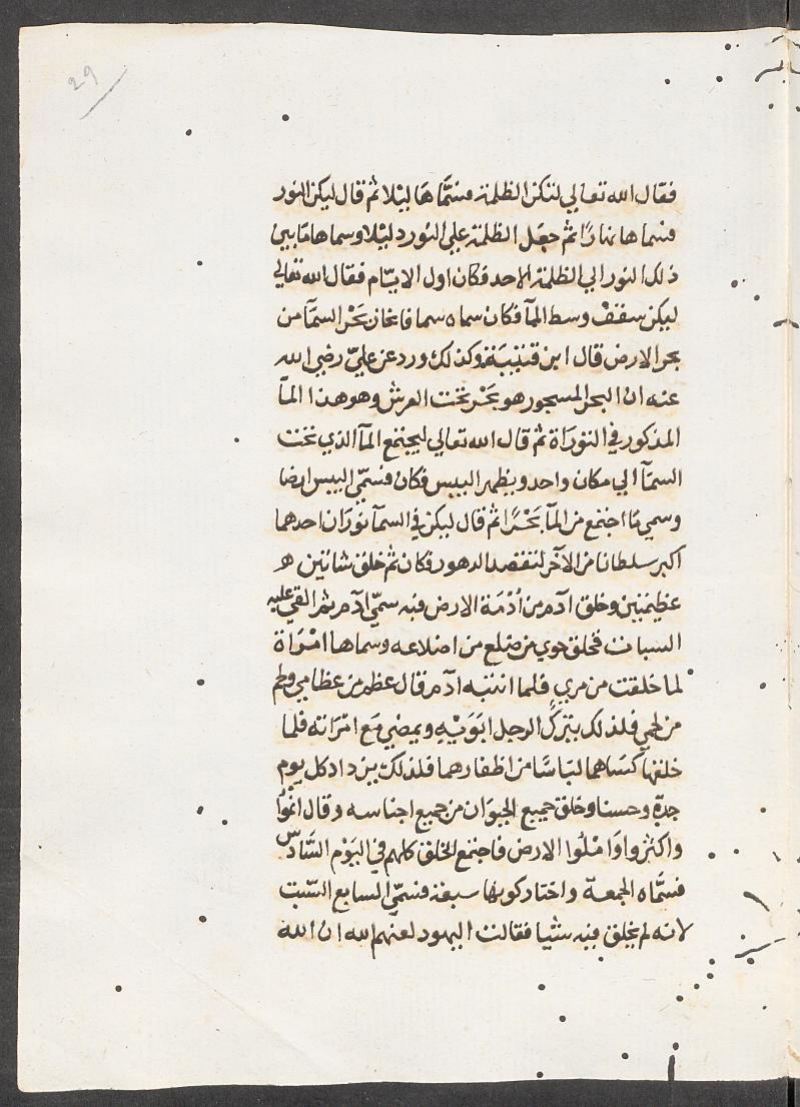 29
فقال الله تعالي لتكن الظلمة فسمَّاهَا ليْلا ثم قال ليكن النور
فسماها نهارًا ثم جعَل الظلمة علي النور دليلا وسماهامَا بين
ذلك النور الي الظلمة الاحد فكان اول الايّام فقال الله تعالي
ليكن سقفْ وسط المآ فكان سماه سما فانحاز بَحْر السمَآ من
بحر الارض قال ابن قتيْبَة وكذلك ورد عن عليّ رضي الله
عنه ان البحر المسجور هو بحْر تحت العرش وهو هذا المآ
المذكور في التورَاة ثم قال الله تعالي ليجتمع المآ الذي تحت
السمَآ الي مكان واحد ويظهر اليبس فكان فسمّي اليبس ارضا
وسمي مَا اجتمع من المآ بَحْرًا ثم قال ليكن في السمآ نورَان احدهما
اكبر سلطانا من الآخر لتقصد الدهور فكان ثم خلق شانين
عظيمَين وخلق آدم من اُدْمَة الارض فبه سمّي آدم ثم القي عليه
السبات فخلق حوي من ضلع من اضلاعه وسماها امْرَاة
لما خلقت من مري فلما انتبه آدم قال عظم من عظامي ولحم
من لحمي فلذلك يتركُ الرجل ابَوَيْهِ ويمضي مَع امْرَاته فلما
خلقها كسَاهما لبَاسًا من اظفارهما فلذلك يزداد كل يوم
جدّة وحسنا وخلق جميع الحيوَان من جميع اجناسه وقال انْمُوا
واكثروا وَامْلُوا الارض فاجتمع الخلق كلهم في اليَوْم السَّادس
فسمَّاه الجمعة واختار كونها سبعة فسمّي السابع السّبت
لانه لم يخلق فيه شيا فقالت اليهود لعنهم الله ان الله